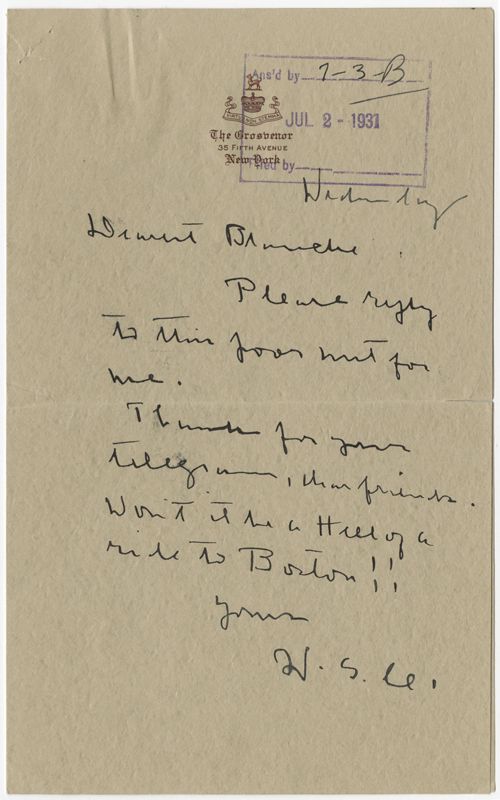 Ans'd by 7-3-B
JUL 2 - 1931
The Grosvenor
35 FIFTH AVENUE
New York
Filed by
Wednesday
Dearest Blanche.
Please reply
to this poor nut for
me.
Thanks for your
telegram, dear friends.
Won't it be a Hell of a
ride to Boston!!
Yours
W. S. C.